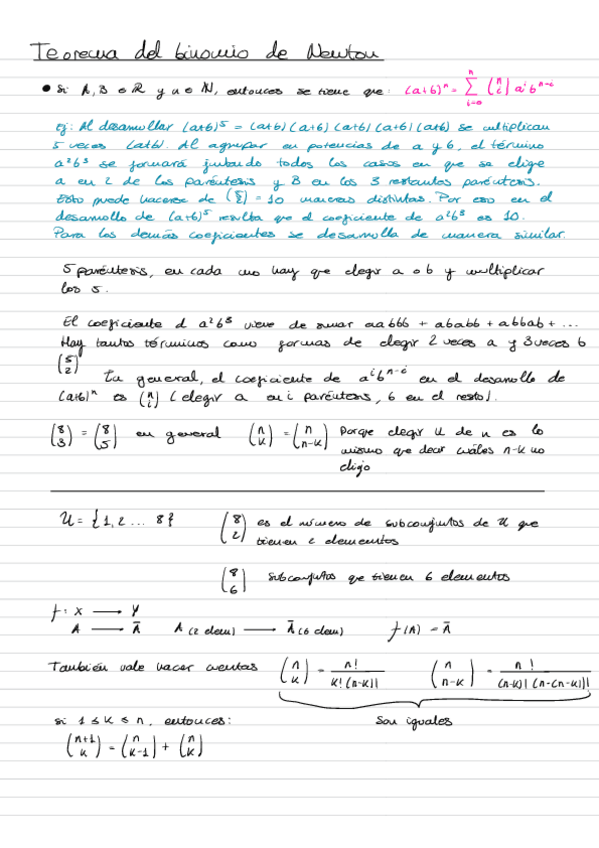 Teorema del binomio de Newton
• Si A, B ∈ ℝ y n ∈ ℕ, entonces se tiene que: (a+b)^n = Σ_{i=0}^{n} (n i) a^i b^{n-i}
ej: Al desarrollar (a+b)^5 = (a+b) (a+b) (a+b) (a+b) (a+b) se multiplican
5 veces (a+b). Al agrupar en potencias de a y b, el término
a²b³ se formará juntando todos los casos en que se elige
a en 2 de los paréntesis y B en los 3 restantes paréntesis.
Esto puede hacerse de = 10 maneras distintas. Por eso en el
desarrollo de (a+b)^5 resulta que el coeficiente de a²b³ es 10.
Para los demás coeficientes se desarrolla de manera similar.
5 paréntesis, en cada uno hay que elegir a o b y multiplicar
los 5.
El coeficiente d a²b³ viene de sumar aabbb + ababb + abbab + ...
Hay tantos términos como formas de elegir 2 veces a y 3 veces b
(5 2)
En general, el coeficiente de a^i b^{n-i} en el desarrollo de
(a+b)^n es (n i) (elegir a en i paréntesis, b en el resto).
(8 3) = (8 5) en general (n k) = (n n-k) Porque elegir k de n es lo
mismo que decir cuáles n-k no
elijo
U = {1, 2 ... 8} (8 2) es el número de subconjuntos de U que
tienen 2 elementos
(8 6) subconjuntos que tienen 6 elementos
f: X → Y
A → Ā A (2 elem) → Ā (6 elem) f(A) = Ā
También vale hacer cuentas (n k) = n! / k! (n-k)! (n n-k) = n! / (n-k)! (n-(n-k))!
si 1 ≤ k ≤ n, entonces: Son iguales
(n+1 k) = (n k-1) + (n k)